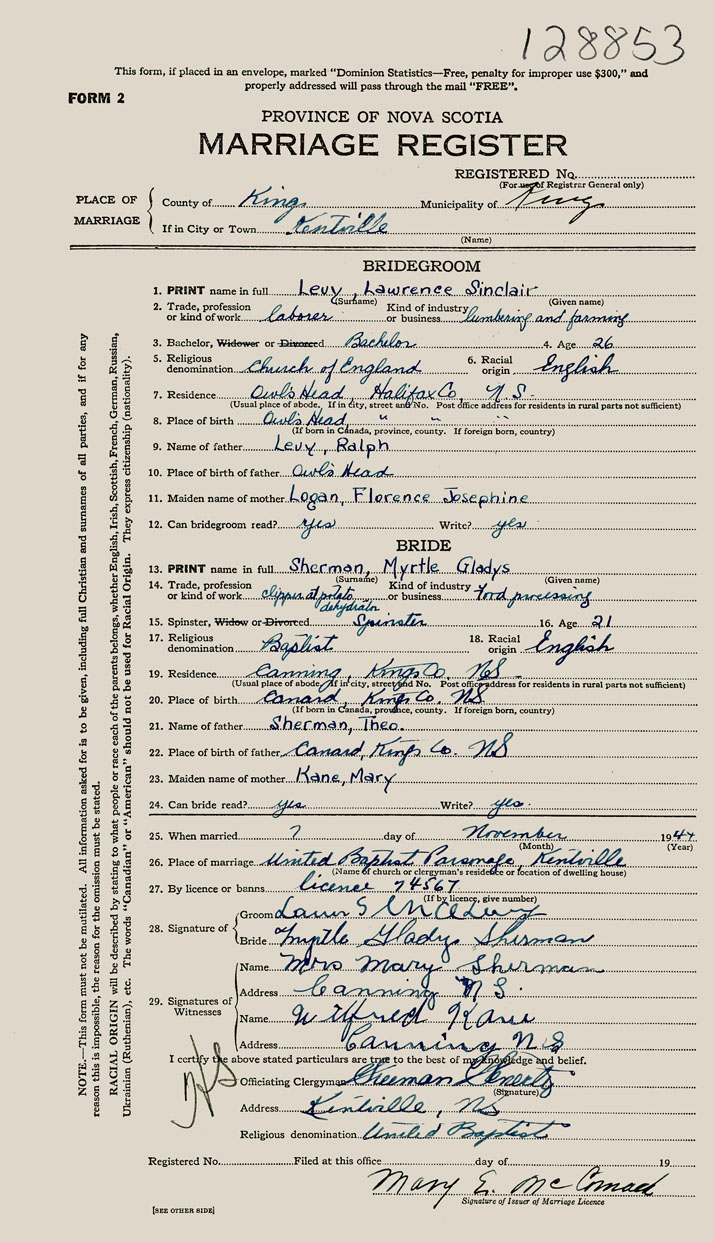 128853
This form, if placed in an envelope, marked “Dominion Statistics—Free, penalty for improper use $300,” and
properly addressed will pass through the mail “FREE”.
FORM 2
PROVINCE OF NOVA SCOTIA
MARRIAGE REGISTER
REGISTERED No.
(For use of Registrar General only)
PLACE OF MARRIAGE
County of Kings Municipality of Kings
If in City or Town Kentville
(Name)
BRIDEGROOM
1. PRINT name in full Levy, Lawrence Sinclair
(Surname) (Given name)
2. Trade, profession or kind of work laborer Kind of industry or business lumbering and farming
3. Bachelor, Widower or Divorced Bachelor 4. Age 26
5. Religious denomination Church of England 6. Racial origin English
7. Residence Owl's Head, Halifax Co, N.S.
(Usual place of abode. If in city, street and No. Post office address for residents in rural parts not sufficient)
8. Place of birth Owl's Head, " " "
(If born in Canada, province, county. If foreign born, country)
9. Name of father Levy, Ralph
10. Place of birth of father Owl's Head
11. Maiden name of mother Logan, Florence Josephine
12. Can bridegroom read? yes Write? yes
BRIDE
13. PRINT name in full Sherman, Myrtle Gladys
(Surname) (Given name)
14. Trade, profession or kind of work clipper at potato dehydrator Kind of industry or business Food processing
15. Spinster, Widow or Divorced Spinster 16. Age 21
17. Religious denomination Baptist 18. Racial origin English
19. Residence Canning, Kings Co, NS
(Usual place of abode. If in city, street and No. Post office address for residents in rural parts not sufficient)
20. Place of birth Canard, Kings Co. NS
(If born in Canada, province, county. If foreign born, country)
21. Name of father Sherman, Theo.
22. Place of birth of father Canard, Kings Co. NS
23. Maiden name of mother Kane, Mary
24. Can bride read? yes Write? yes.
25. When married day of November 1944
(Month) (Year)
26. Place of marriage United Baptist Parsonage, Kentville
(Name of church or clergyman's residence or location of dwelling house)
27. By licence or banns licence 74567
(If by licence, give number)
28. Signature of
Groom Levy
Bride Myrtle Gladys Sherman
29. Signatures of Witnesses
Name Mrs Mary Sherman
Address Canning N.S.
Name Wilfred Kane
Address Canning N.S
I certify the above stated particulars are true to the best of my knowledge and belief.
Officiating Clergyman
(Signature)
Address Kentville, NS
Religious denomination United Baptist
Registered No. Filed at this office day of 19
Mary E. McConnell
Signature of Issuer of Marriage Licence
[SEE OTHER SIDE]
NOTE.—This form must not be mutilated. All information asked for is to be given, including full Christian and surnames of all parties, and if for any
reason this is impossible, the reason for the omission must be stated.
RACIAL ORIGIN will be described by stating to what people or race each of the parents belongs, whether English, Irish, Scottish, French, German, Russian,
Ukrainian (Ruthenian), etc. The words “Canadian” or “American” should not be used for Racial Origin. They express citizenship (nationality).